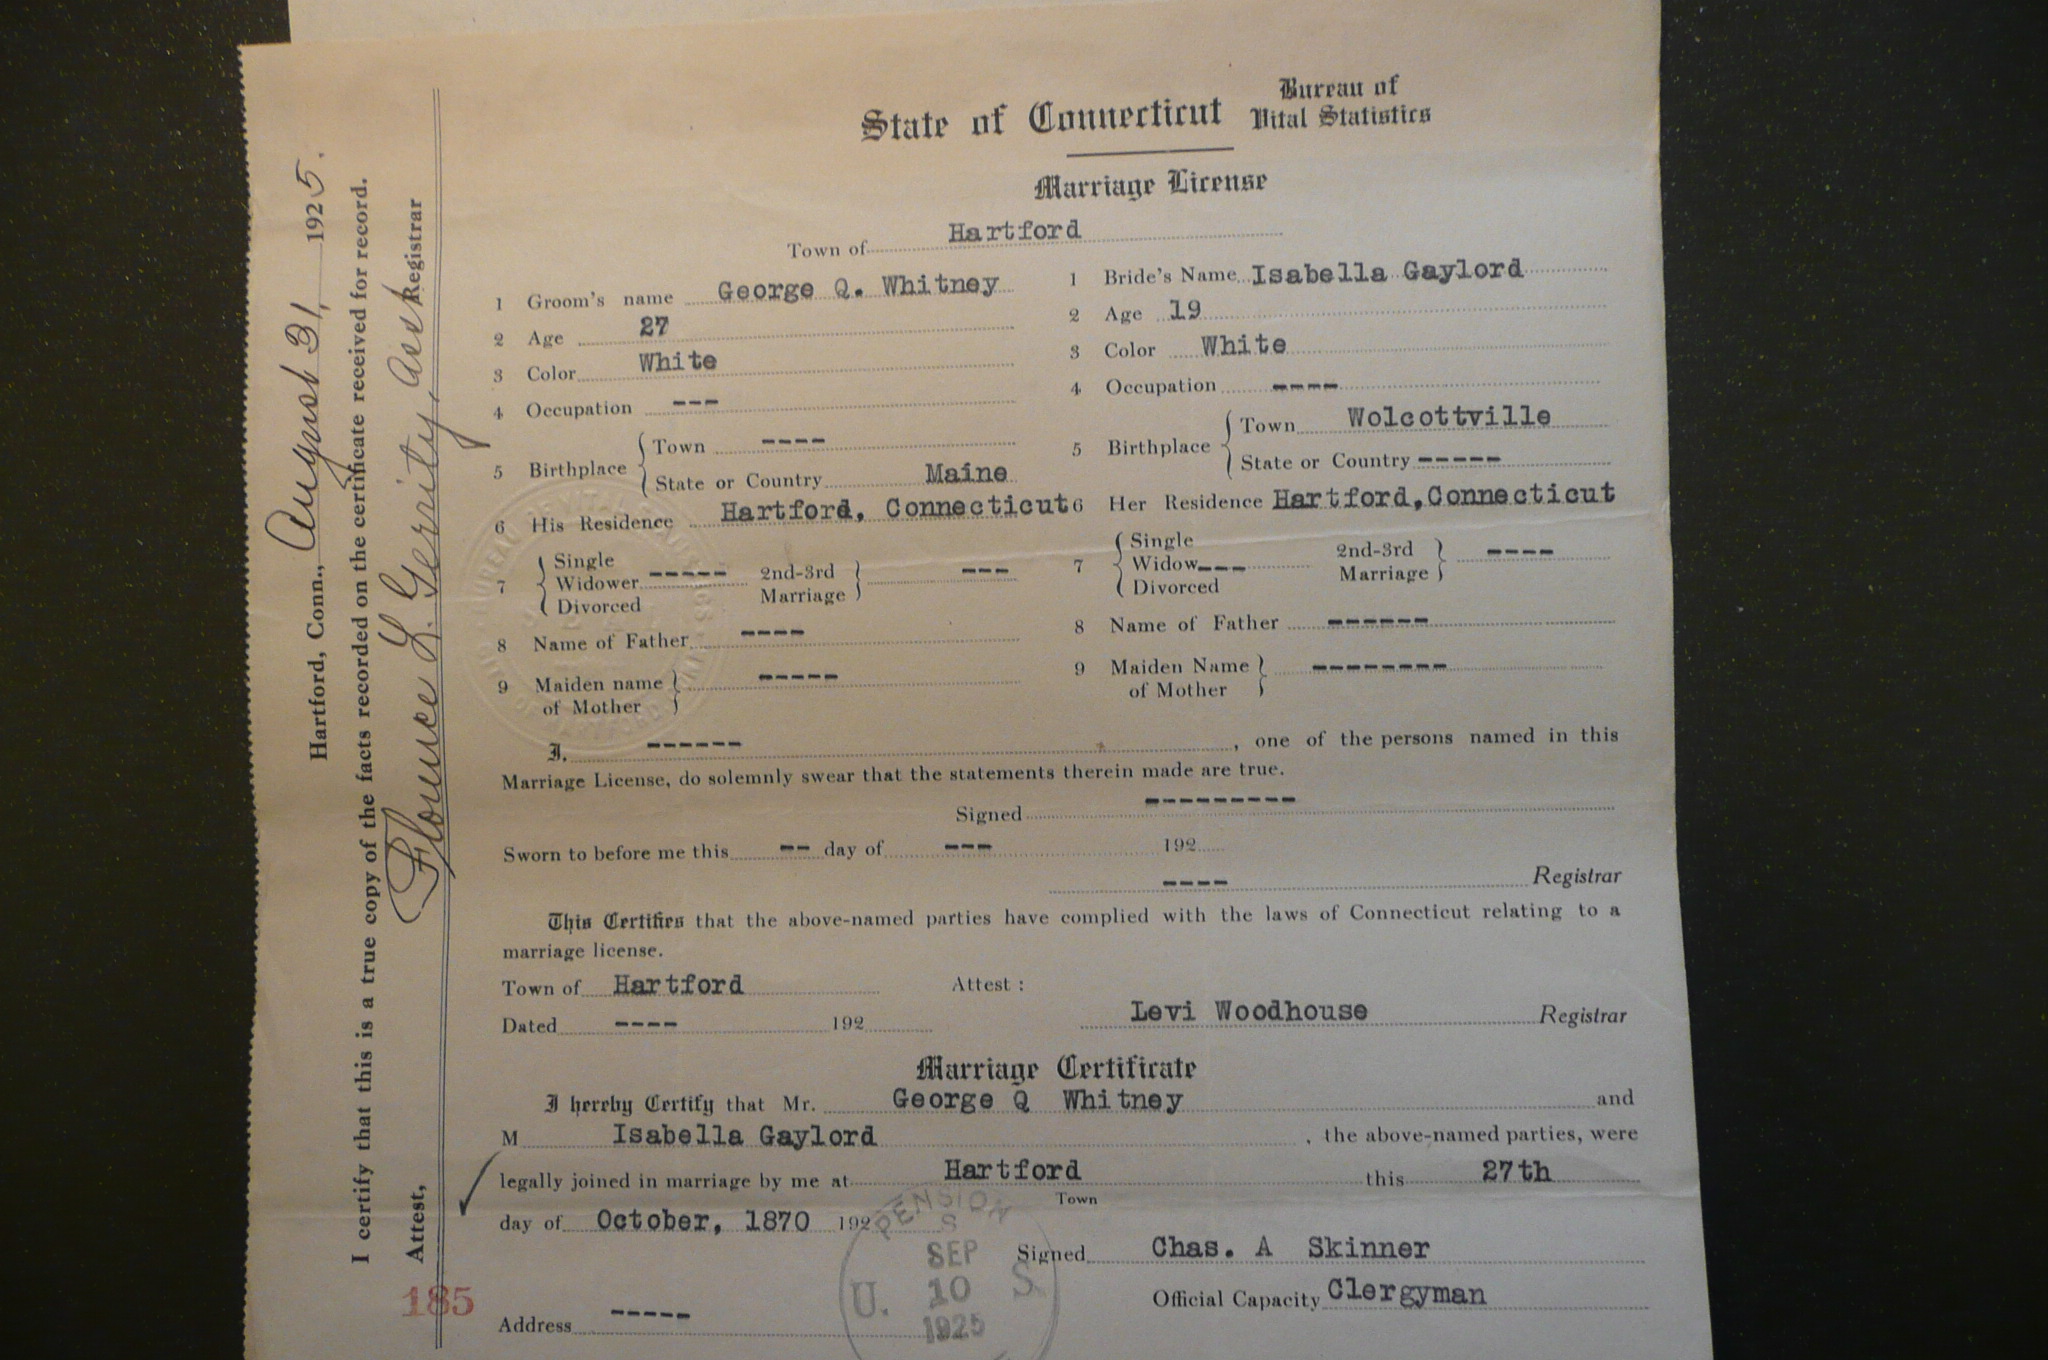 State of Connecticut Bureau of Vital Statistics
Marriage License
Town of Hartford
1 Groom's name George Q. Whitney
2 Age 27
3 Color White
4 Occupation ---
5 Birthplace { Town ----
State or Country Maine
6 His Residence Hartford, Connecticut
7 { Single
Widower ----- 2nd-3rd Marriage } ---
Divorced
8 Name of Father ----
9 Maiden name of Mother } -----
1 Bride's Name Isabella Gaylord
2 Age 19
3 Color White
4 Occupation ----
5 Birthplace { Town Wolcottville
State or Country -----
6 Her Residence Hartford, Connecticut
7 { Single
Widow --- 2nd-3rd Marriage } ----
Divorced
8 Name of Father ------
9 Maiden Name of Mother } --------
I. ------ , one of the persons named in this
Marriage License, do solemnly swear that the statements therein made are true.
Signed ---------
Sworn to before me this -- day of --- 192
---- Registrar
This Certifies that the above-named parties have complied with the laws of Connecticut relating to a
marriage license.
Town of Hartford Attest :
Dated ---- 192 Levi Woodhouse Registrar
Marriage Certificate
I hereby Certify that Mr. George Q Whitney and
M Isabella Gaylord , the above-named parties, were
legally joined in marriage by me at Hartford this 27th
Town
day of October, 1870 192
Signed Chas. A Skinner
Official Capacity Clergyman
Address -----
PENSION
S
SEP
U. 10 S.
1925
Hartford, Conn., August 31, 1925.
I certify that this is a true copy of the facts recorded on the certificate received for record.
Attest, Florence L. Gerrity, Asst. Registrar
185